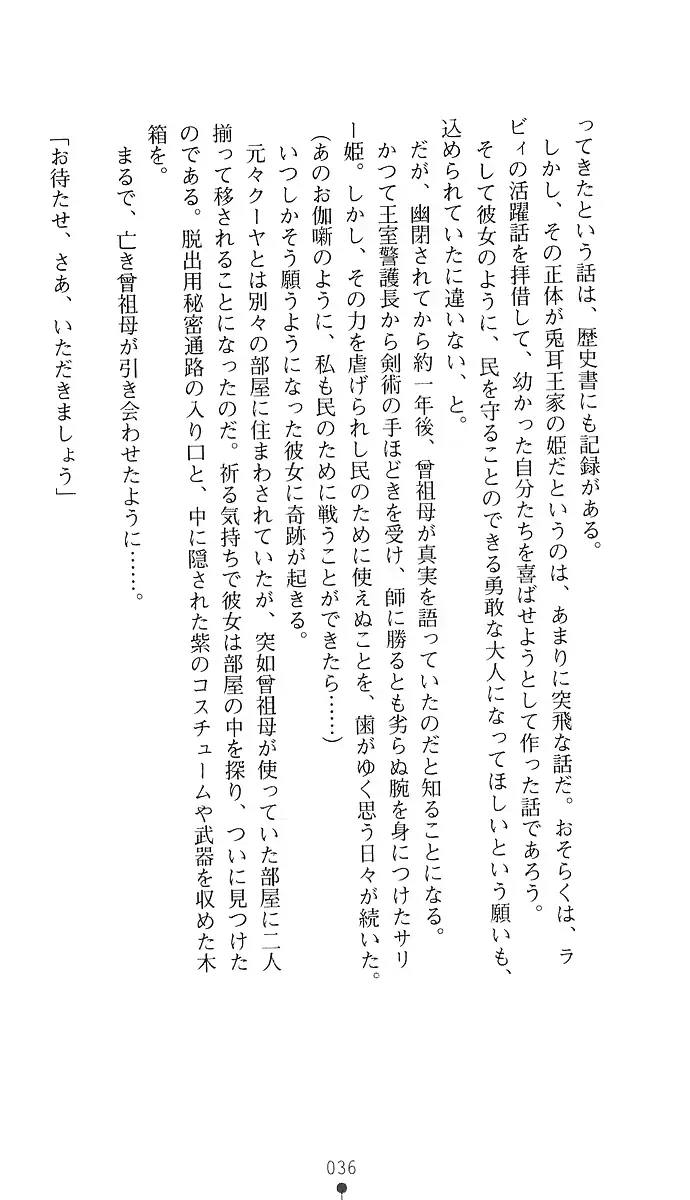 ってきたという話は、歴史書にも記録がある。
しかし、その正体が兎耳王家の姫だというのは、あまりに突飛な話だ。おそらくは、ラ
ビィの活躍話を拝借して、幼かった自分たちを喜ばせようとして作った話であろう。
そして彼女のように、民を守ることのできる勇敢な大人になってほしいという願いも、
込められていたに違いない、と。
だが、幽閉されてから約一年後、曾祖母が真実を語っていたのだと知ることになる。
かつて王室警護長から剣術の手ほどきを受け、師に勝るとも劣らぬ腕を身につけたサリ
ー姫。しかし、その力を虐げられし民のために使えぬことを、歯がゆく思う日々が続いた。
(あのお伽噺のように、私も民のために戦うことができたら……)
いつしかそう願うようになった彼女に奇跡が起きる。
元々クーヤとは別々の部屋に住まわされていたが、突如曾祖母が使っていた部屋に二人
揃って移されることになったのだ。祈る気持ちで彼女は部屋の中を探り、ついに見つけた
のである。脱出用秘密通路の入り口と、中に隠された紫のコスチュームや武器を収めた木
箱を。
まるで、亡き曾祖母が引き会わせたように……。
「お待たせ、さあ、いただきましょう」
036